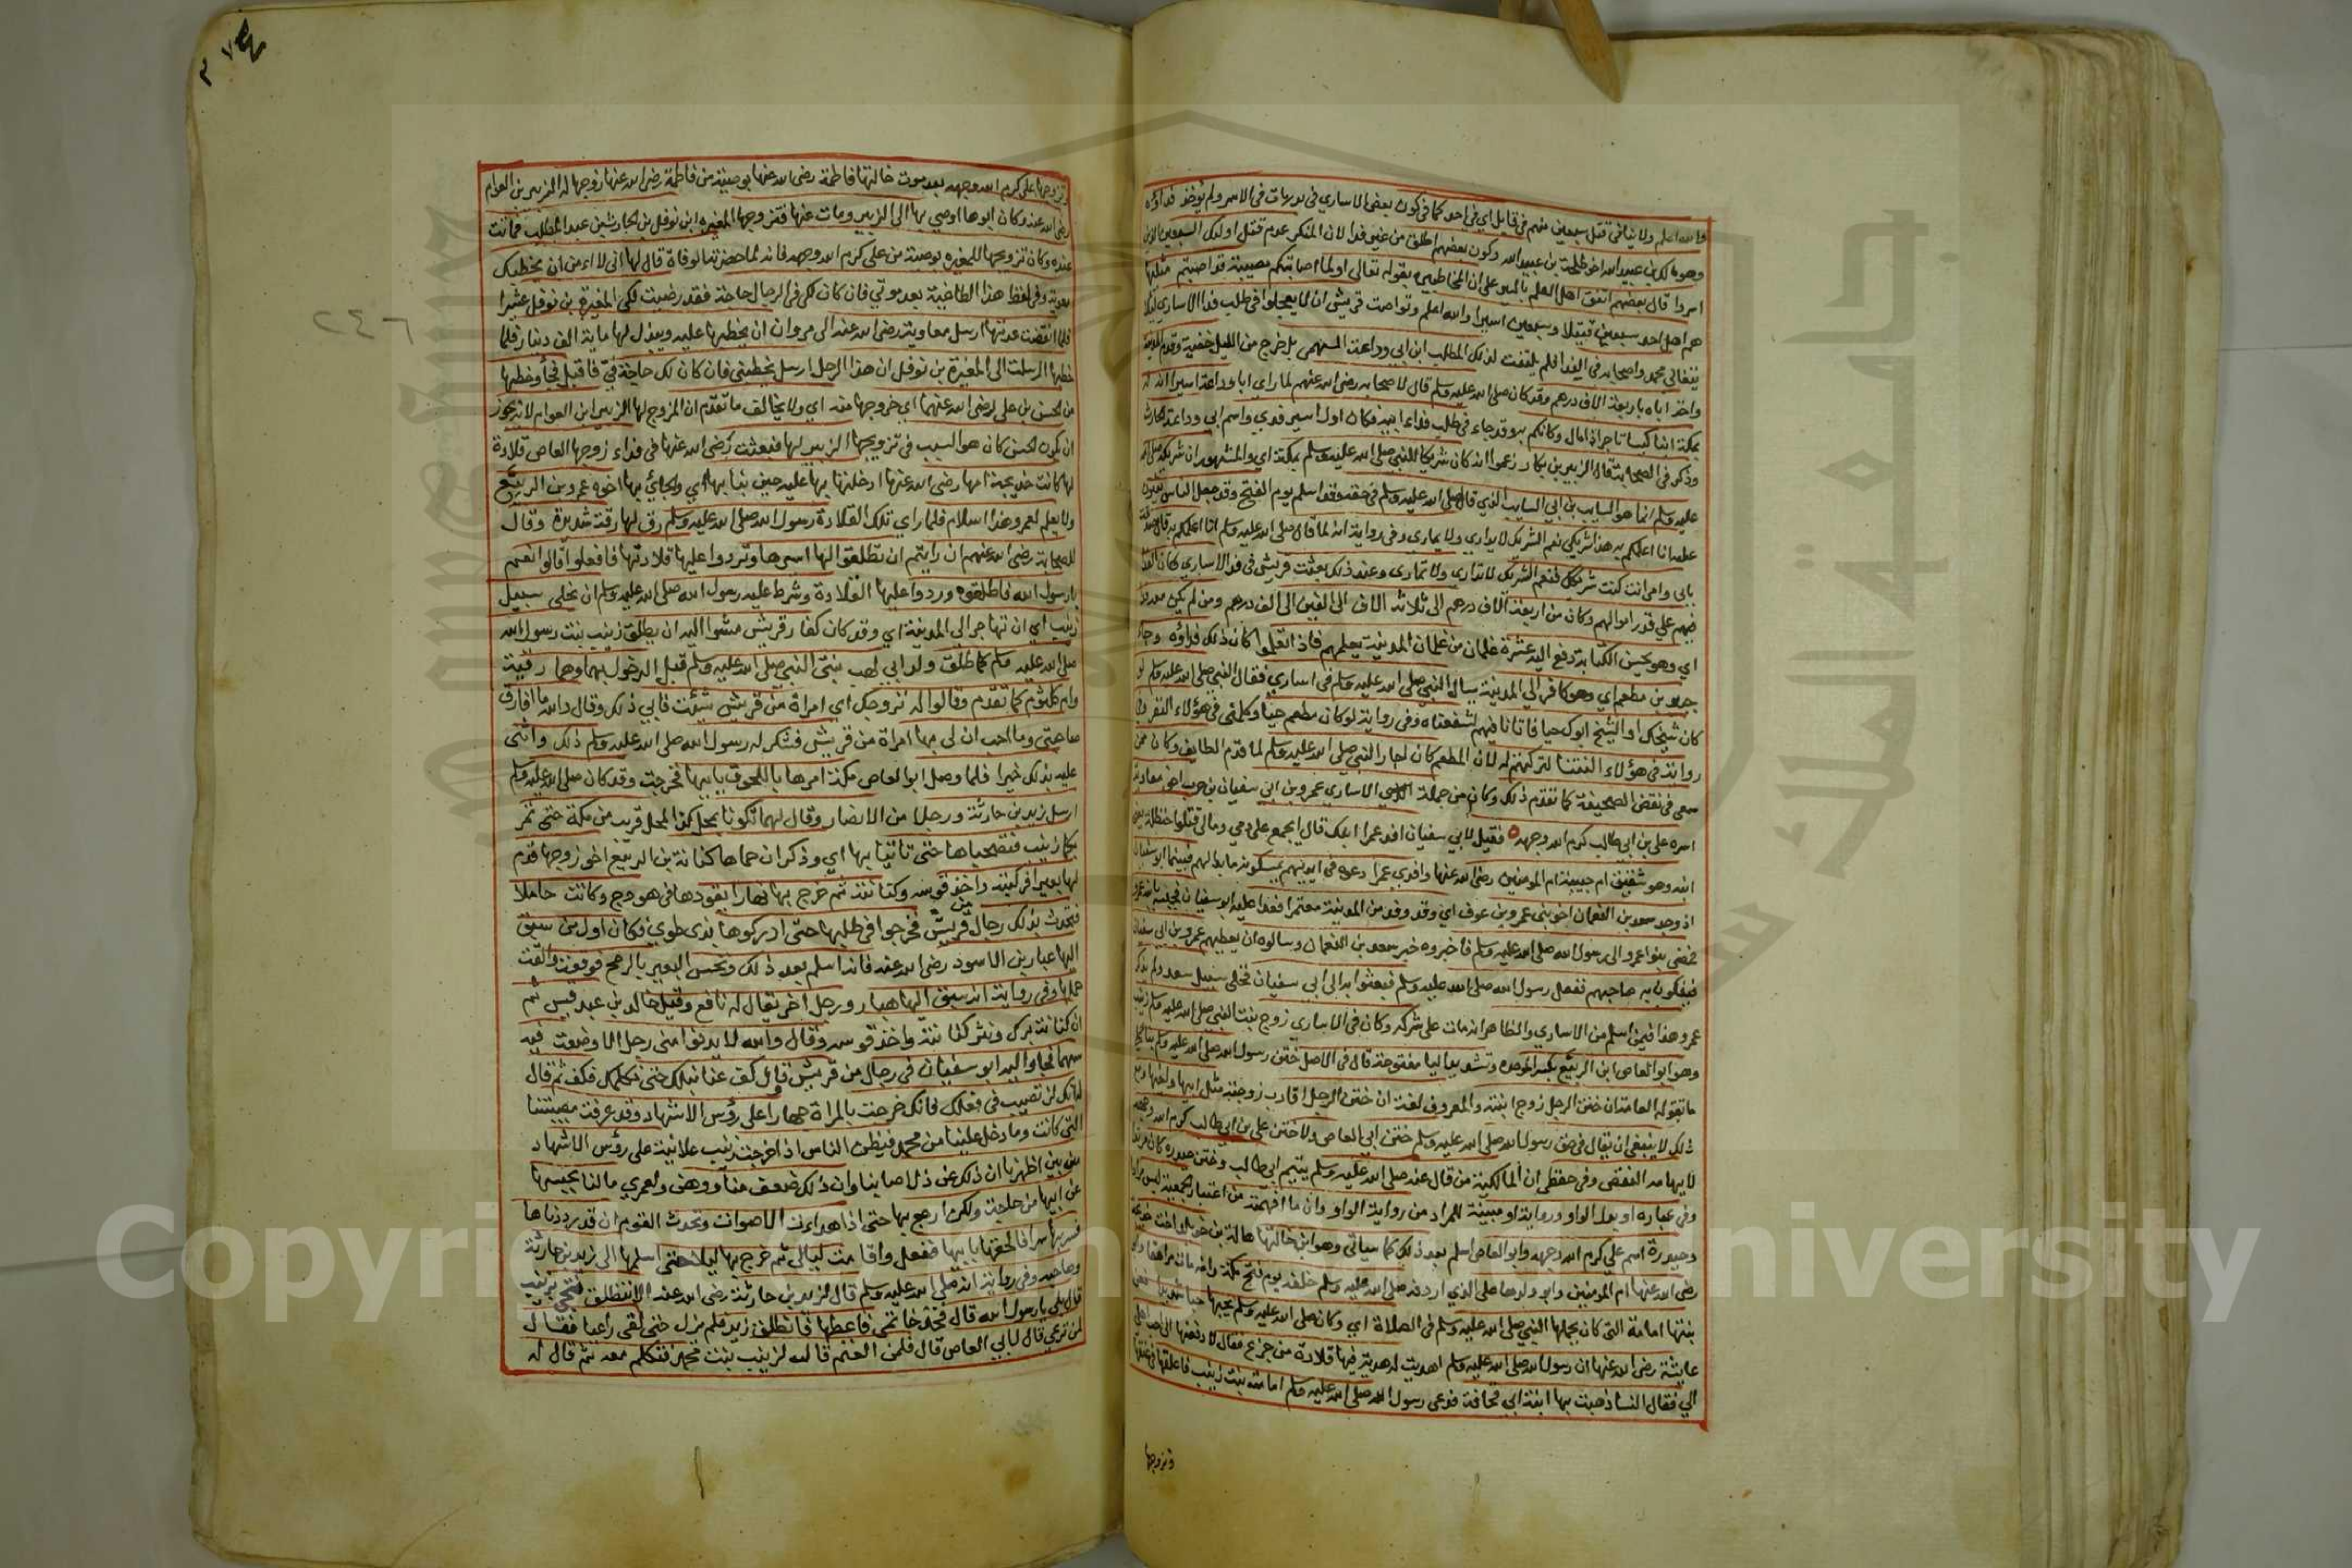 والله اعلم ولا ينافي قتل سبعين منهم في قابل اي في احد كما في كون بعض الاساري في بدر مات في الاسر ولم يؤخذ فداؤه
وهو مالك بن عبيد الله اخو طلحة بن عبيد الله وكون بعضهم اطلق من غير فدا لان المنكر عدم قتل اولئك السبعين الذين
اسروا قال بعضهم اتفق اهل العلم بالسير على ان المخاطبين بقوله تعالى اولما اصابتكم مصيبة قد اصبتم مثليها
هم اهل احد سبعين قتيلا وسبعين اسيرا والله اعلم وتواصت قريش ان لا يعجلوا في طلب فدا الاساري
يتغالى محمد واصحابه في الفدا فلم يلتفت لذلك المطلب ابن ابي وداعة السهمي بل خرج من الليل خفية وقدم المدينة
واخذ اباه باربعة الاف درهم وقد كان صلى الله عليه وسلم قال لاصحابه رضي الله عنهم لما راي ابا وداعة اسيرا ان له
بمكة ابنا كيسا تاجرا ذا مال وكانكم به وقد جاء في طلب فداء ابيه فكان اول اسير فدي واسم ابي وداعة الحارث
وذكر في الصحابة قال الزبير بن بكار زعموا انه كان شريكا للنبي صلى الله عليه وسلم بمكة اي والمشهور ان شريكه صلى الله
عليه وسلم انما هو السايب بن ابي السايب الذي قال صلى الله عليه وسلم في حقه وقد اسلم يوم الفتح وقد جعل الناس
عليه انا اعلمكم به هذا شريكي نعم الشريك لا يداري ولا يماري وفي رواية انه لما قال صلى الله عليه وسلم انا اعلمكم به قال صدقت
بابي وامي انت كنت شريكك فنعم الشريك لا تداري ولا تماري وعند ذلك بعثت قريش في فدا الاساري وكان الفدا
فيهم على قدر اموالهم وكان من اربعة الاف درهم الى ثلاثة الاف الى الفين الى الف درهم ومن لم يكن معه فدا
اي وهو يحسن الكتابة دفع اليه عشرة غلمان من غلمان المدينة يعلمهم فاذا تعلموا كان ذلك فداؤه وجاء
جبير بن مطعم اي وهو كافر الى المدينة يسال النبي صلى الله عليه وسلم في اساري فقال النبي صلى الله عليه وسلم لو
كان شيخك او الشيخ ابوك حيا فاتانا فيهم لشفعناه وفي رواية لو كان مطعم حيا وكلمني في هؤلاء النفر وفي
رواية في هؤلاء النتنا لتركتهم له لان المطعم كان اجار النبي صلى الله عليه وسلم لما قدم الطايف وكان ممن
سعى في نقض الصحيفة كما تقدم ذلك وكان من جملة الاساري عمرو بن ابي سفيان بن حرب اخو معاوية
اسره علي بن ابي طالب كرم الله وجهه فقيل لابي سفيان افد عمرا ابنك قال ايجمع علي دمي ومالي قتلوا حنظلة يعني
ابنه وهو شقيق ام حبيبة ام المومنين رضي الله عنها وافدي عمرا دعوه في ايديهم يمسكونه ما بدا لهم فبينما ابو سفيان
اذ وجد سعد بن النعمان اخو بني عمرو بن عوف اي وقد وفد من المدينة معتمرا فعدا عليه ابو سفيان فحبسه بابنه عمرو
فمضى بنوا عمرو الى رسول الله صلى الله عليه وسلم فاخبروه خبر سعد بن النعمان وسالوه ان يعطيهم عمرو بن ابي سفيان
فيفكون به صاحبهم ففعل رسول الله صلى الله عليه وسلم فبعثوا به الى ابي سفيان فخلى سبيل سعد ولم يذكر
عمرو هذا فيمن اسلم من الاساري والظاهر انه مات على شركه وكان في الاساري زوج بنت النبي صلى الله عليه وسلم زينب
وهو ابو العاص ابن الربيع بكسر الموحدة وتشديد اليا مفتوحة قال في الاصل ختن رسول الله صلى الله عليه وسلم
ما تقوله العامة ان ختن الرجل زوج ابنته والمعروف لغة ان ختن الرجل اقارب زوجته مثل ابيها واخيها ومع
ذلك لا ينبغي ان يقال في حق رسول الله صلى الله عليه وسلم ختن ابي العاص ولا ختن علي بن ابي طالب كرم الله وجهه
لايهامه النقص وفي حفظي ان المالكية من قال عنه صلى الله عليه وسلم يتيم ابي طالب وختن حيدرة كان مرتدا
وفي عبارة او بدل الواو ورواية او مبينة للمراد من رواية الواو وان ما افهمته من اعتبار الجمعية ليس مرادا
وحيدرة اسم علي كرم الله وجهه وابو العاص اسلم بعد ذلك كما سياتي وهو ابن خالتها هالة بنت خويلد اخت خديجة
رضي الله عنها ام المومنين وابو ولدها علي الذي اردفه صلى الله عليه وسلم خلفه يوم فتح مكة ومات مراهقا وابو
بنتها امامة التي كان يحملها النبي صلى الله عليه وسلم في الصلاة اي وكان صلى الله عليه وسلم يحبها حبا شديدا فعن
عايشة رضي الله عنها ان رسول الله صلى الله عليه وسلم اهديت له هدية فيها قلادة من جزع فقال لادفعنها الى احب اهلي
الي فقال النسا ذهبت بها ابنة ابي قحافة فدعى رسول الله صلى الله عليه وسلم امامة بنت زينب فاعلقها في عنقها
وتزوجها
٢٤٦
وتزوجها علي كرم الله وجهه بعد موت خالتها فاطمة رضي الله عنها بوصية من فاطمة رضي الله عنها زوجها له الزبير بن العوام
رضي الله عنه وكان ابوها اوصى بها الى الزبير ومات عنها فتزوجها المغيرة ابن نوفل بن الحارث بن عبد المطلب فماتت
عنده وكان تزويجها للمغيرة بوصية من علي كرم الله وجهه فانه لما حضرته الوفاة قال لها اني لا امن ان يخطبك
معوية وفي لفظ هذا الطاغية بعد موتي فان كان لك في الرجال حاجة فقد رضيت لكي المغيرة بن نوفل عشيرا
فلما انقضت عدتها ارسل معاوية رضي الله عنه الى مروان ان يخطبها عليه ويبذل لها ماية الف دينار فلما
خطبها ارسلت الى المغيرة بن نوفل ان هذا الرجل ارسل يخطبني فان كان لك حاجة في فاقبل فجأ وخطبها
من الحسن بن علي رضي الله عنهما اي فزوجها منه اي ولا يخالف ما تقدم ان المزوج لها الزبير ابن العوام لانه يجوز
ان يكون الحسن كان هو السبب في تزويجها الزبير لها فبعثت رضي الله عنها في فداء زوجها العاص قلادة
لها كانت خديجة امها رضي الله عنها ادخلتها بها عليه حين بنا بها اي والجائي بها اخوه عمرو بن الربيع
ولا يعلم لعمرو هذا اسلام فلما راي تلك القلادة رسول الله صلى الله عليه وسلم رق لها رقة شديدة وقال
للصحابة رضي الله عنهم ان رايتم ان تطلقوا لها اسيرها وتردوا عليها قلادتها فافعلوا قالوا نعم
يا رسول الله فاطلقوه وردوا عليها القلادة وشرط عليه رسول الله صلى الله عليه وسلم ان يخلي سبيل
زينب اي ان تهاجر الى المدينة اي وقد كان كفار قريش مشوا اليه ان يطلق زينب بنت رسول الله
صلى الله عليه وسلم كما طلق ولدا ابي لهب بنتي النبي صلى الله عليه وسلم قبل الدخول بهما وهما رقية
وام كلثوم كما تقدم وقالوا له نزوجك اي امراة من قريش شئت فابي ذلك وقال والله ما افارق
صاحبتي وما احب ان لي بها امراة من قريش فشكر له رسول الله صلى الله عليه وسلم ذلك واثنى
عليه بذلك خيرا فلما وصل ابو العاص مكة امرها باللحوق بابيها فخرجت وقد كان صلى الله عليه وسلم
ارسل زيد بن حارثة ورجلا من الانصار وقال لهما تكونا بمحل كذا لمحل قريب من مكة حتى تمر
بكما زينب فتصحباها حتى تاتيا بها اي وذكر ان حماها كنانة بن الربيع اخو زوجها قدم
لها بعيرا فركبته واخذ قوسه وكنانته ثم خرج بها نهارا يقودها في هودج وكانت حاملا
فتحدث بذلك رجال من قريش فخرجوا في طلبها حتى ادركوها بذي طوي فكان اول من سبق
اليها هبار بن الاسود رضي الله عنه فانه اسلم بعد ذلك ونخس البعير بالرمح فوقعت والقت
حملها وفي رواية انه سبق اليها هبار ورجل اخر يقال له نافع وقيل خالد بن عبد قيس ثم
ان كنانة برك ونثر كنانته واخذ قوسه وقال والله لا يدنوا مني رجل الا وضعت فيه
سهما فجاء اليه ابو سفيان في رجال من قريش وقال كف عنا نبلك حتى نكلمك فكف ثم قال
له انك لن تصيب في فعلك فانك خرجت بالمراة جهارا على رؤس الاشهاد وقد عرفت مصيبتنا
التي كانت وما دخل علينا من محمد فيظن الناس اذا خرجت زينب علانية على رؤس الاشهاد
من بين اظهرنا ان ذلك عن ذل اصابنا وان ذلك ضعف منا ووهن ولعمري ما لنا بحبسها
عن ابيها من حاجة ولكن ارجع بها حتى اذا هدات الاصوات وتحدث القوم ان قد رددناها
فسر بها سرا فالحقها بابيها ففعل واقامت ليالي ثم خرج بها ليلا حتى اسلمها الى زيد بن حارثة
وصاحبه وفي رواية انه صلى الله عليه وسلم قال لزيد بن حارثة رضي الله عنه الا تنطلق فتجي بزينب
قال بلى يا رسول الله قال فخذ خاتمي فاعطها فانطلق زيد فلم يزل حتى لقي راعيا فقال
لمن ترعي قال لابي العاص قال فلمن الغنم قال لزينب بنت محمد فتكلم معه ثم قال له
Copyright © University